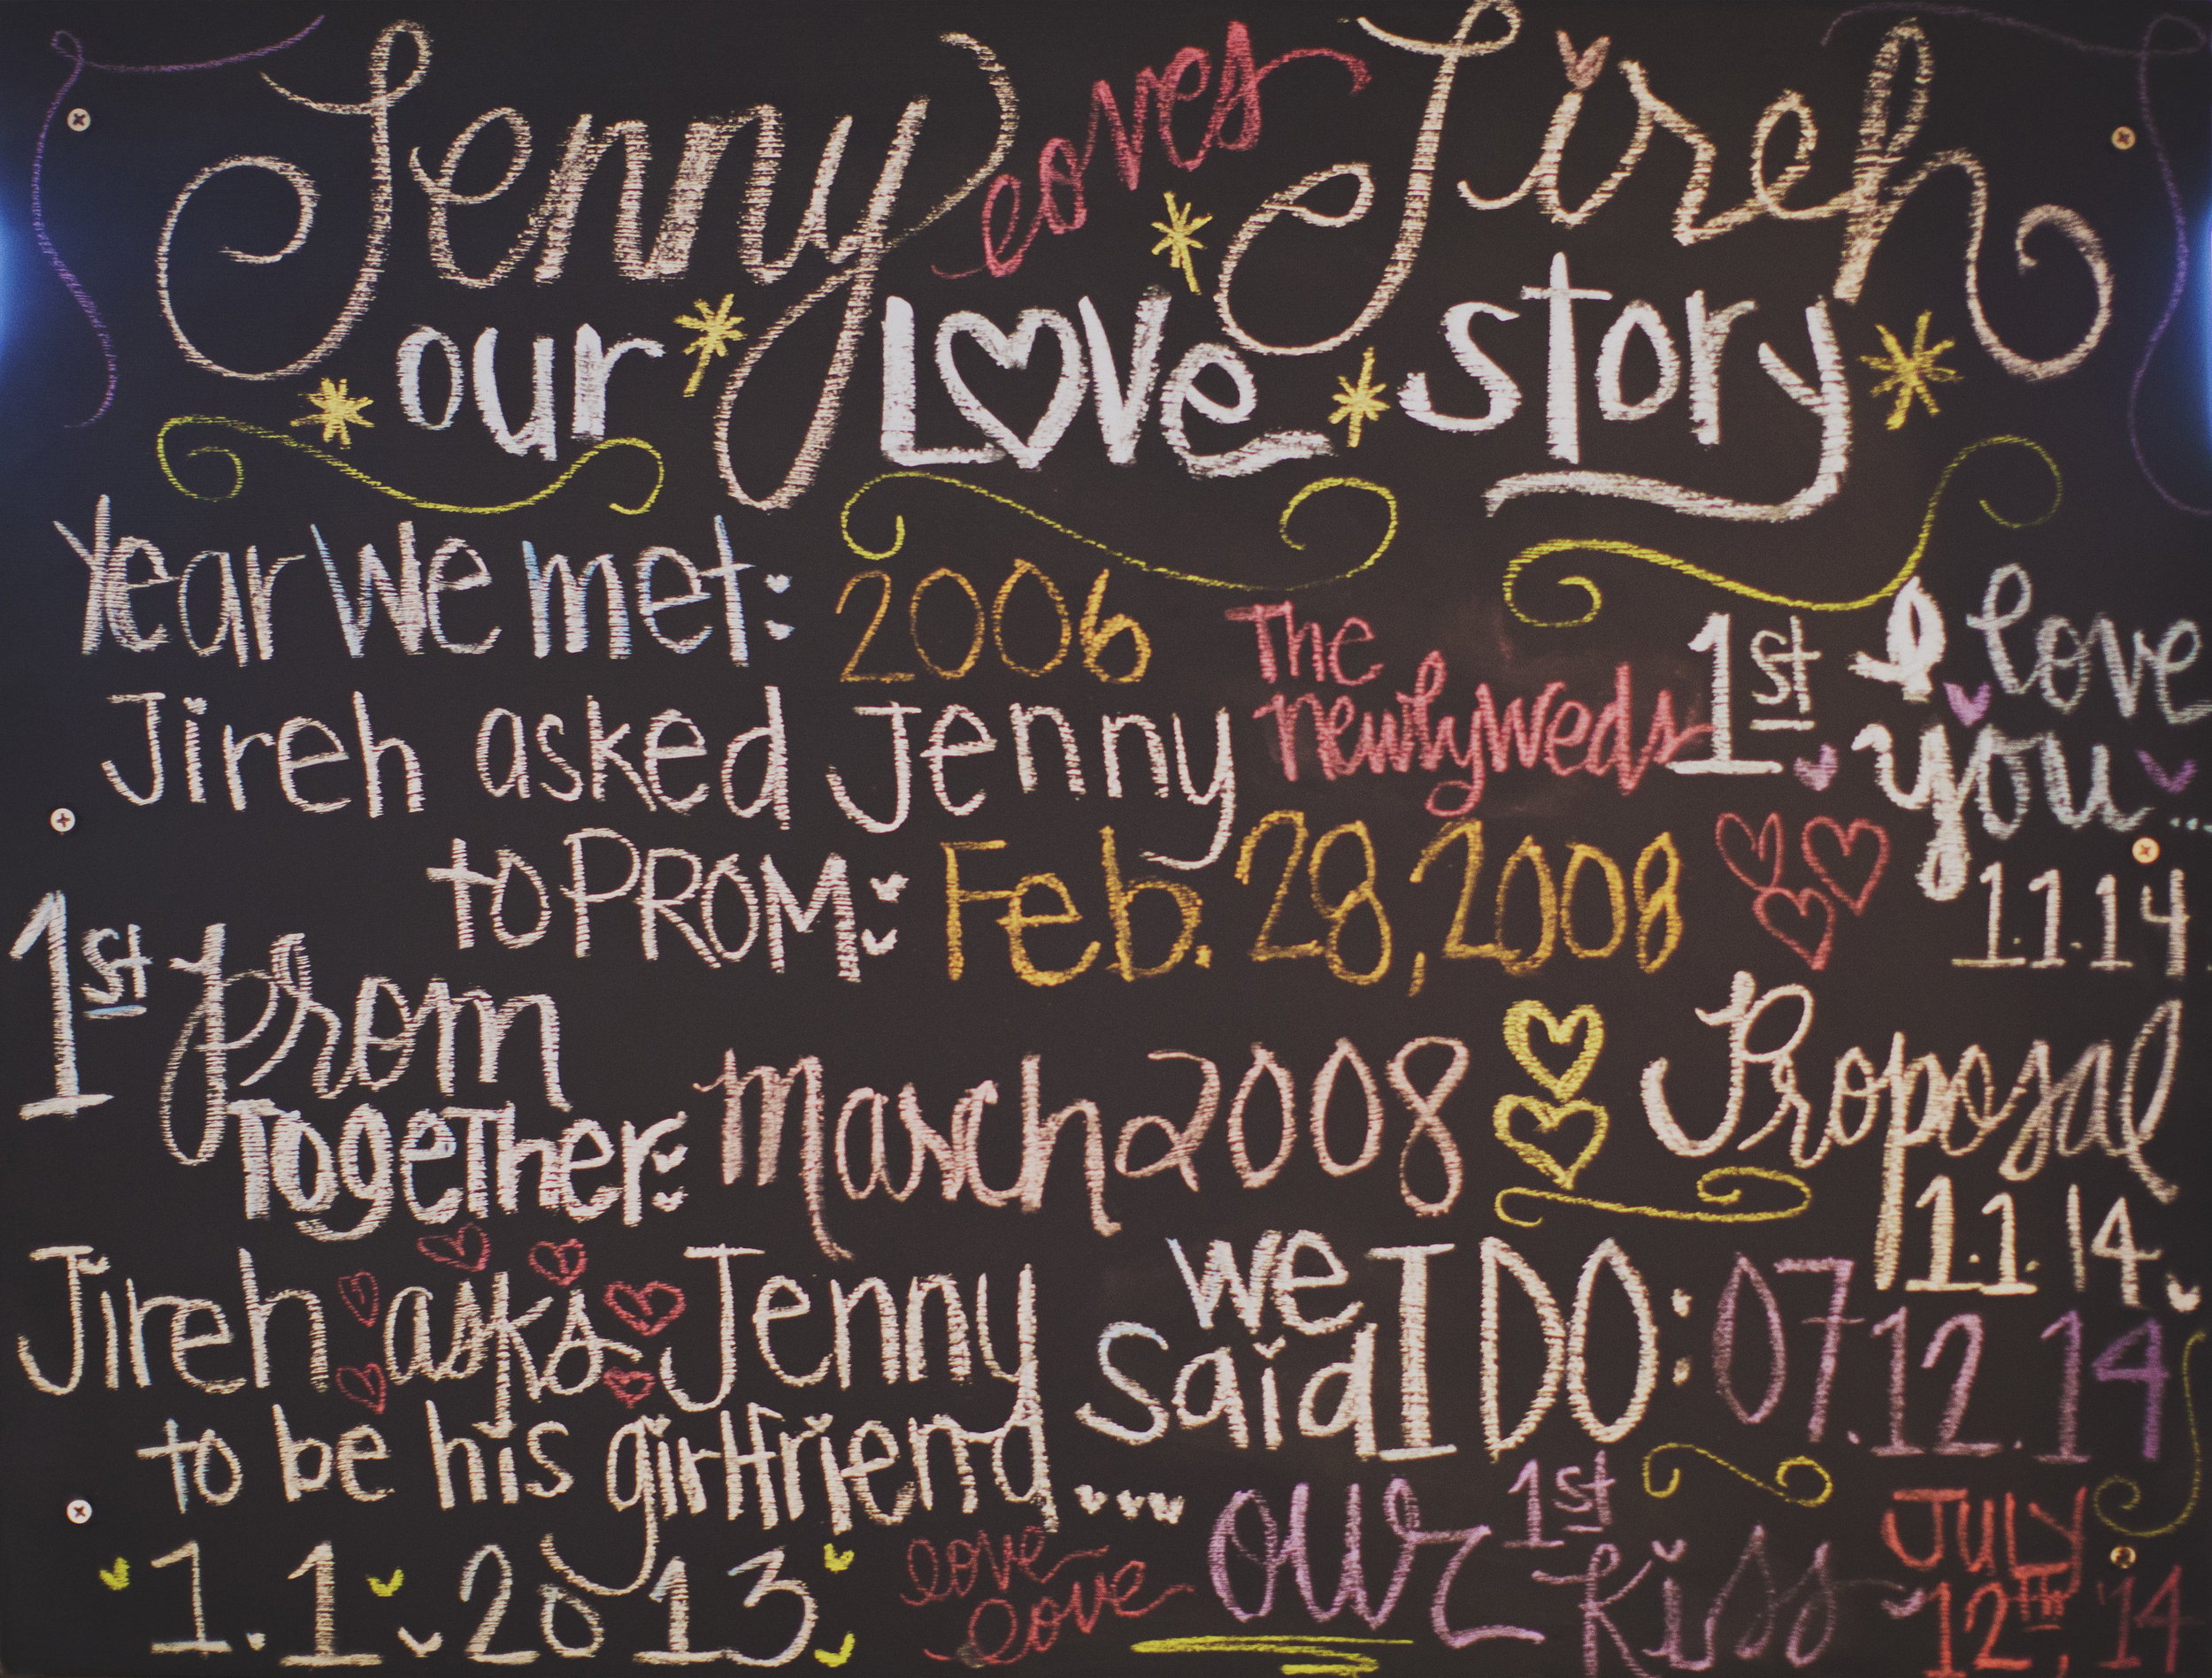 Jenny loves Jireh
our Love story
Year We met: 2006
The newlyweds
1st I love you...
1.1.14
Jireh asked Jenny
to PROM: Feb. 28, 2008
1st prom
Together: march 2008
Proposal
1.1.14
Jireh asks Jenny
to be his girlfriend...
1.1.2013
we
said I DO: 07.12.14
love
love
our 1st kiss
JULY
12TH, '14